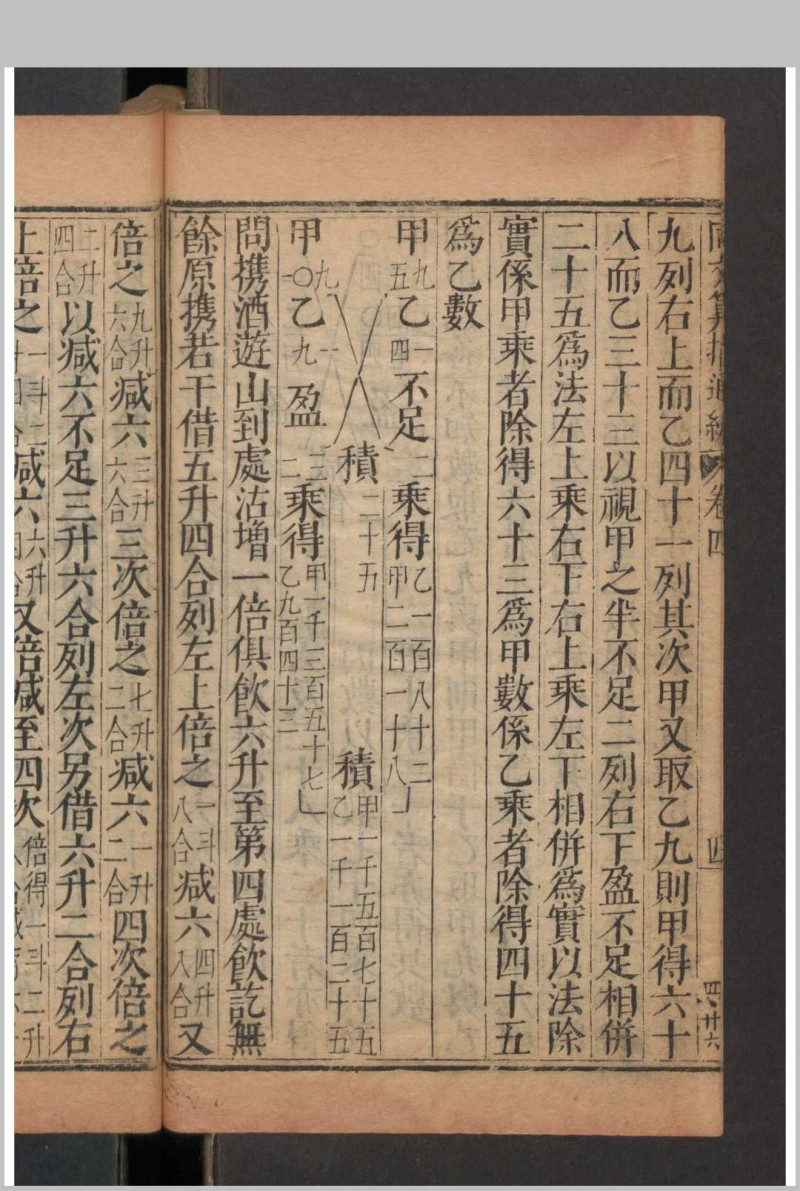 同文算指通編 卷四 四 四 廿六
九列右上而乙四十一列其次甲又取乙九則甲得六十
八而乙三十三以視甲之半不足二列右下盈不足相併
二十五爲法左上乘右下右上乘左下相併爲實以法除
實係甲乘者除得六十三爲甲數係乙乘者除得四十五
爲乙數
甲九五乙一四不足二乘得乙一百八十二甲二百一十八
積二十五積甲一千五百七十五乙一千一百二十五
甲九一〇乙一九盈三二乘得甲一千三百五十七乙九百四十三
問携酒遊山到處沽增一倍俱飲六升至第四處飲訖無
餘原携若干借五升四合列左上倍之一斗八合減六四升八合又
倍之九升六合減六三升六合三次倍之七升二合減六一升二合四次倍之
二升四合以減六不足三升六合列左次另借六升二合列右
上倍之一斗二減六六升又倍減至四次倍得一斗二升